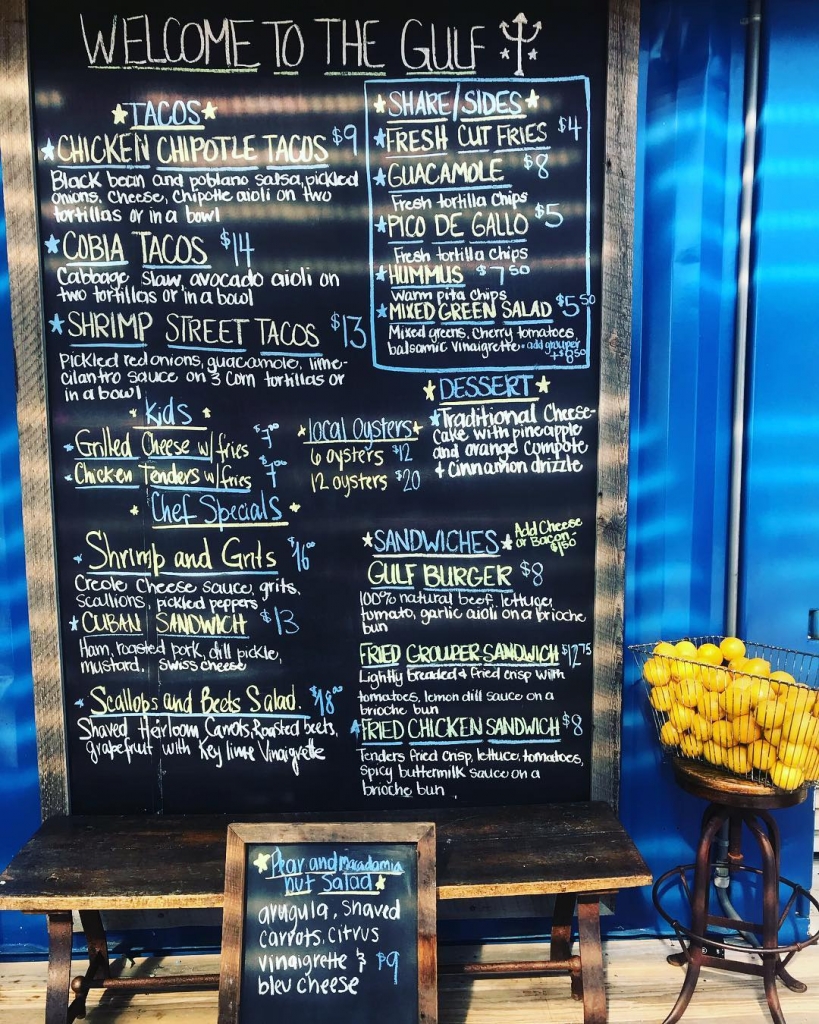 WELCOME TO THE GULF
★TACOS★
★CHICKEN CHIPOTLE TACOS $9
Black bean and poblano salsa, pickled
onions, cheese, Chipotle aioli on two
tortillas or in a bowl
★COBIA TACOS $14
Cabbage slaw, avocado aioli on
two tortillas or in a bowl
★SHRIMP STREET TACOS $13
Pickled red onions, guacamole, lime-
cilantro sauce on 3 corn tortillas or
in a bowl
★SHARE/SIDES★
★FRESH CUT FRIES $4
★GUACAMOLE $8
Fresh tortilla chips
★PICO DE GALLO $5
Fresh tortilla chips
★HUMMUS $7 50
Warm pita chips
★MIXED GREEN SALAD $5 50
Mixed greens, cherry tomatoes,
balsamic vinaigrette · add grouper
+$8.50
★Kids★
★Grilled Cheese w/fries $7 00
★Chicken Tenders w/fries $7 00
★local Oysters★
6 oysters $12
12 oysters $20
★DESSERT★
★Traditional Cheese-
cake with pineapple
and orange compote
+ cinnamon drizzle
★Chef Specials★
★Shrimp and Grits $16 00
Creole Cheese sauce, grits,
scallions, pickled peppers
★CUBAN SANDWICH $13
Ham, roasted pork, dill pickle,
mustard, swiss cheese
★Scallops and Beets Salad. $18 00
Shaved Heirloom Carrots, Roasted beets,
grapefruit with Key lime Vinaigrette
★SANDWICHES★
Add Cheese
or Bacon-
$1.50
GULF BURGER $8
100% natural beef, lettuce,
tomato, garlic aioli on a brioche
bun
FRIED GROUPER SANDWICH $12 75
Lightly breaded & fried crisp with
tomatoes, lemon dill sauce on a
brioche bun
★FRIED CHICKEN SANDWICH $8
Tenders fried crisp, lettuce, tomatoes,
spicy buttermilk sauce on a
brioche bun
★Pear and macadamia
nut Salad★
arugula, shaved
carrots, citrus
vinaigrette & $9
bleu cheese